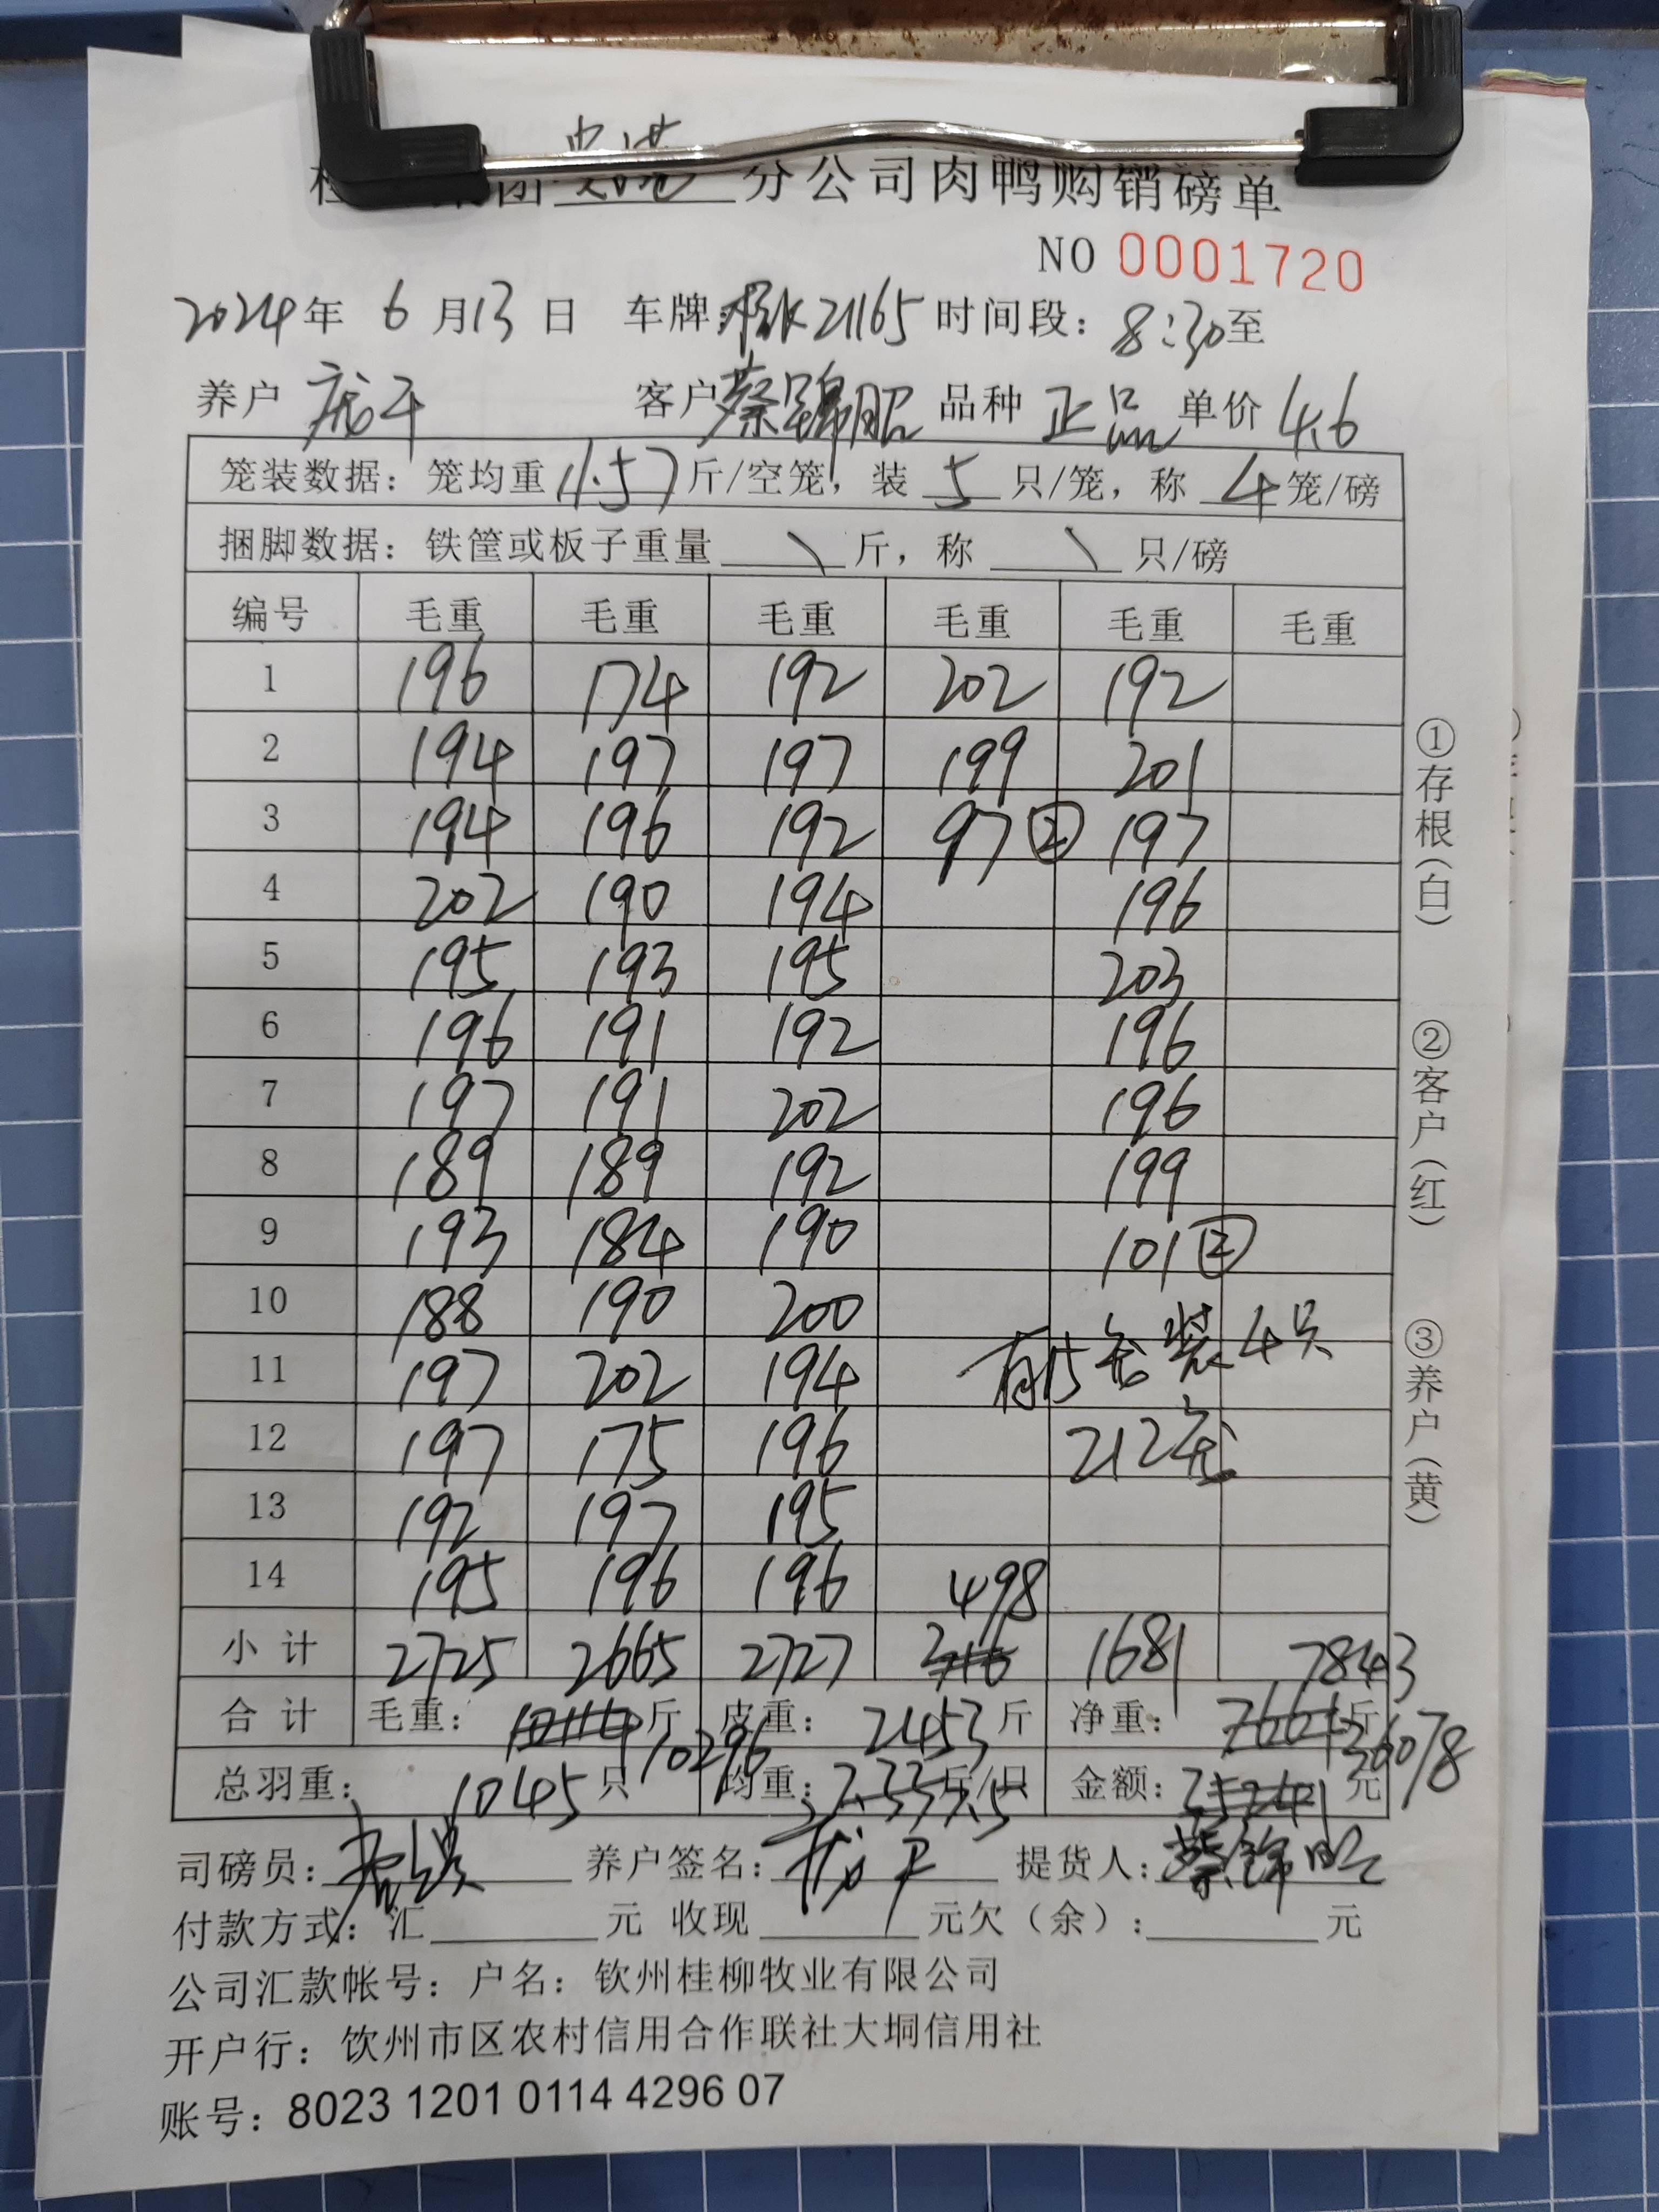 分公司肉鸭购销磅单
NO 0001720
2024年 6月13日 车牌: 21165 时间段: 8:30至
养户 庞 客户 蔡锦昭 品种 正品 单价 4.6
笼装数据: 笼均重 11.57 斤/空笼, 装 5 只/笼, 称 4 笼/磅
捆脚数据: 铁筐或板子重量 \ 斤, 称 \ 只/磅
编号 毛重 毛重 毛重 毛重 毛重 毛重
1 196 174 192 202 192
2 194 197 197 199 201
3 194 196 192 97② 197
4 202 190 194 196
5 195 193 195 203
6 196 191 192 196
7 197 191 202 196
8 189 189 192 199
9 193 184 190 101②
10 188 190 200
11 197 202 194 有15 装4只
12 197 175 196 212
13 192 197 195
14 195 196 196 498
小计 2725 2665 2727 1681 7843
合计 毛重: 斤 10296 皮重: 2453 斤 净重: 斤
总羽重: 1045 只 均重: 斤/只 7.5 金额: 元 36078
司磅员: 养户签名: 提货人: 蔡锦昭
付款方式: 汇 元 收现 元欠(余): 元
公司汇款帐号: 户名: 钦州桂柳牧业有限公司
开户行: 钦州市区农村信用合作联社大垌信用社
账号: 8023 1201 0114 4296 07
①存根(白)
②客户(红)
③养户(黄)